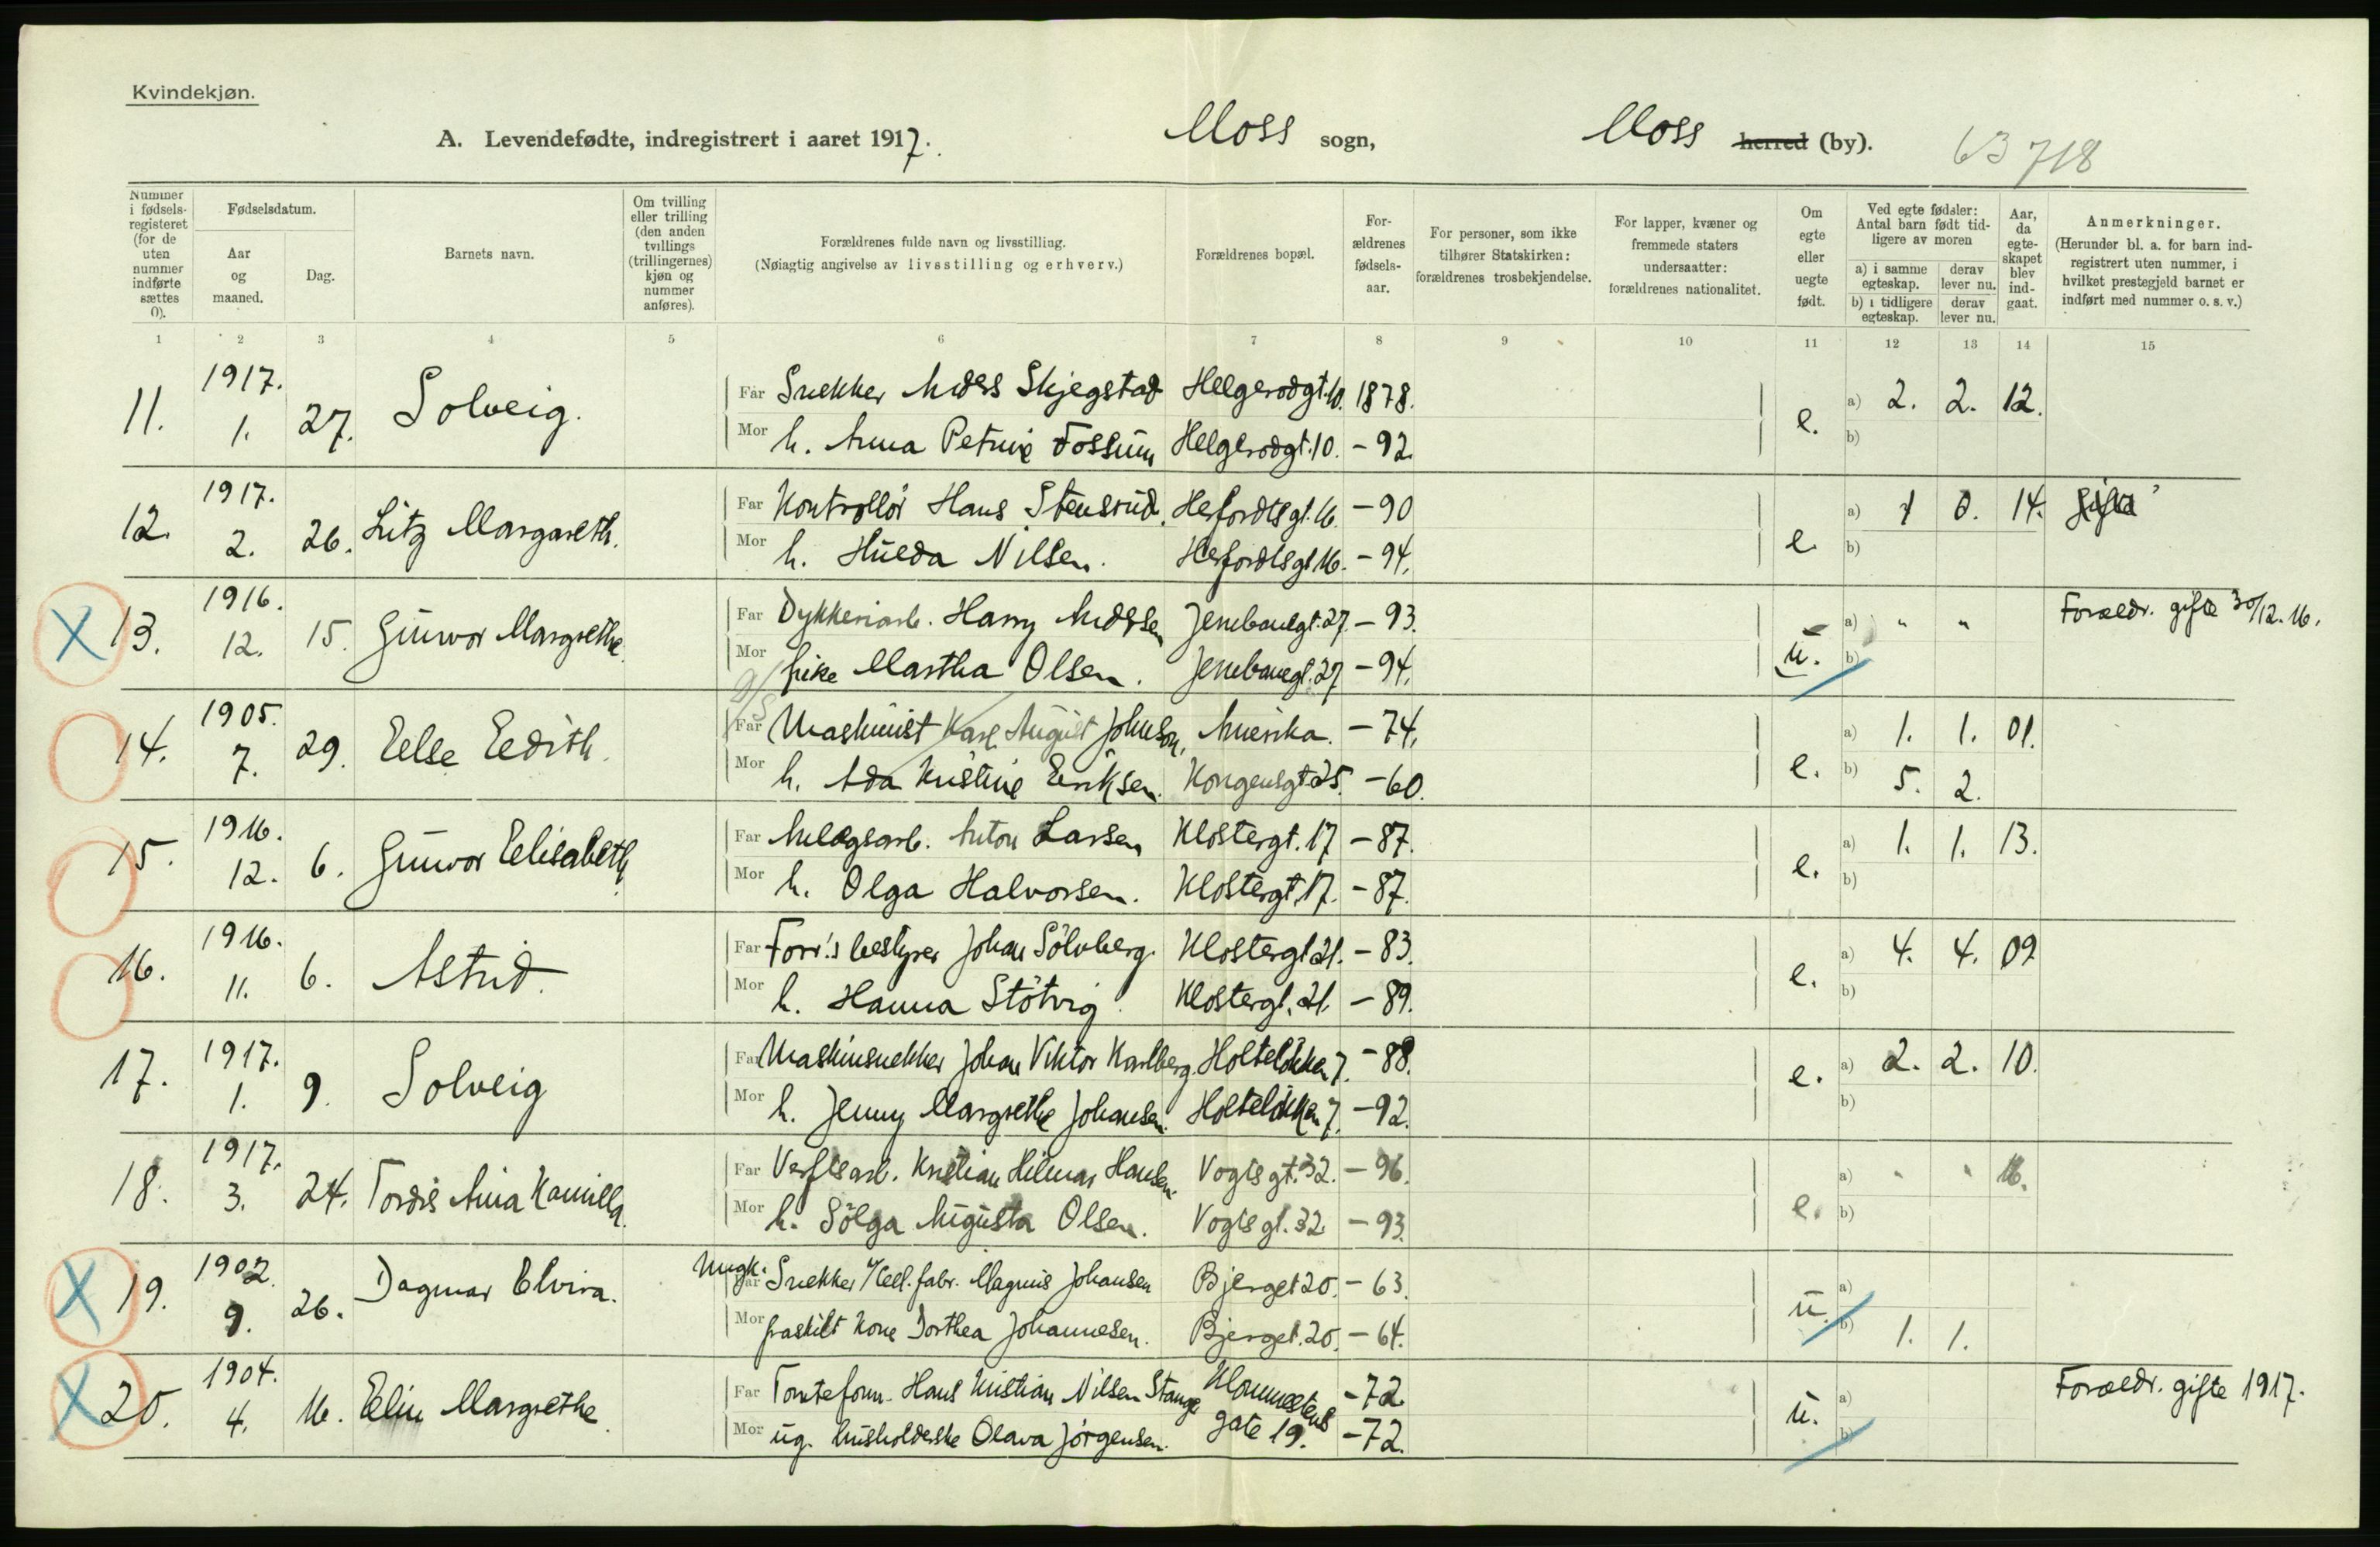 Kvindekjøn.
A. Levendefødte, indregistrert i aaret 1917. Moss sogn, Moss herred (by). 63 718
Nummer i fødselsregisteret (for de uten nummer indførte sættes 0).
Fødselsdatum.
Aar og maaned.
Dag.
Barnets navn.
Om tvilling eller trilling (den anden tvillings (trillingernes) kjøn og nummer anføres).
Forældrenes fulde navn og livsstilling.
(Nøiagtig angivelse av livsstilling og erhverv.)
Forældrenes bopæl.
Forældrenes fødselsaar.
For personer, som ikke tilhører Statskirken: forældrenes trosbekjendelse.
For lapper, kvæner og fremmede staters undersaatter: forældrenes nationalitet.
Om egte eller uegte født.
Ved egte fødsler: Antal barn født tidligere av moren
a) i samme egteskap.
derav lever nu.
b) i tidligere egteskap.
derav lever nu.
Aar, da egteskapet blev indgaat.
Anmerkninger.
(Herunder bl. a. for barn indregistrert uten nummer, i hvilket prestegjeld barnet er indført med nummer o. s. v.)
1 2 3 4 5 6 7 8 9 10 11 12 13 14 15
11. 1917. 1. 27. Solveig.
Far Snekker Anders Skjegstad Helgerødgt. 10. 1878. e. a) 2. 2. 12.
Mor h. Anna Petrine Fossum Helgerødgt. 10. - 92. b)
12. 1917. 2. 26. Litz Margareth.
Far Kontrollör Hans Stensrud. Herfordtsgt. 16. - 90 e. a) 1 0. 14. gifte
Mor h. Hulda Nilsen. Herfordtsgt. 16. - 94. b)
X 13. 1916. 12. 15. Gunvor Margrethe.
Far Dykkeriarb. Harry Anderssen Jernbanegt. 27. - 93. u. a) " " Foræld. gifte 30/12. 16.
Mor pike Martha Olsen. Jernbanegt. 27 - 94. b)
14. 1905. 7. 29. Else Edith.
Far Maskinist Karl August Johnson, Amerika. - 74. e. a) 1. 1. 01.
Mor h. Ada Kristine Eriksen. Kongensgt. 25. - 60. b) 5. 2.
15. 1916. 12. 6. Gunvor Elisabeth.
Far Anlægsarb. Anton Larsen Klostergt. 17 - 87. e. a) 1. 1. 13.
Mor h. Olga Halvorsen. Klostergt. 17. - 87. b)
16. 1916. 11. 6. Astrid.
Far Forr.s bestyrer Johan Sölvberg. Klostergt 21. - 83. e. a) 4. 4. 09
Mor h. Hanna Stötvig. Klostergt. 21. - 89. b)
17. 1917. 1. 9. Solveig
Far Maskinsnekker Johan Viktor Karlberg. Holtelökken 7. - 88. e. a) 2. 2. 10.
Mor h. Jenny Margrethe Johansen. Holtelökken 7. - 92. b)
18. 1917. 3. 24. Tordis Ania Kamilla.
Far Verftsarb. Kristian Hilmar Hansen. Vogtsgt. 32. - 96. e. a) " " 16.
Mor h. Sölga Augusta Olsen. Vogtsgt. 32. - 93. b)
X 19. 1902. 9. 26. Dagmar Elvira.
Ungk. Far Snekker v/ Cell. fabr. Magnus Johansen Bjerget 20. - 63. u. a)
Mor fraskilt kone Dorthea Johannesen. Bjerget. 20. - 64. b) 1. 1.
X 20. 1904. 4. 16. Elin Margrethe.
Far Tomteform. Hans Kristian Nilsen Stange - 72. u. a) Foræld. gifte 1917.
Mor ug. husholderske Olava Jörgensen. gate 19. - 72. b)